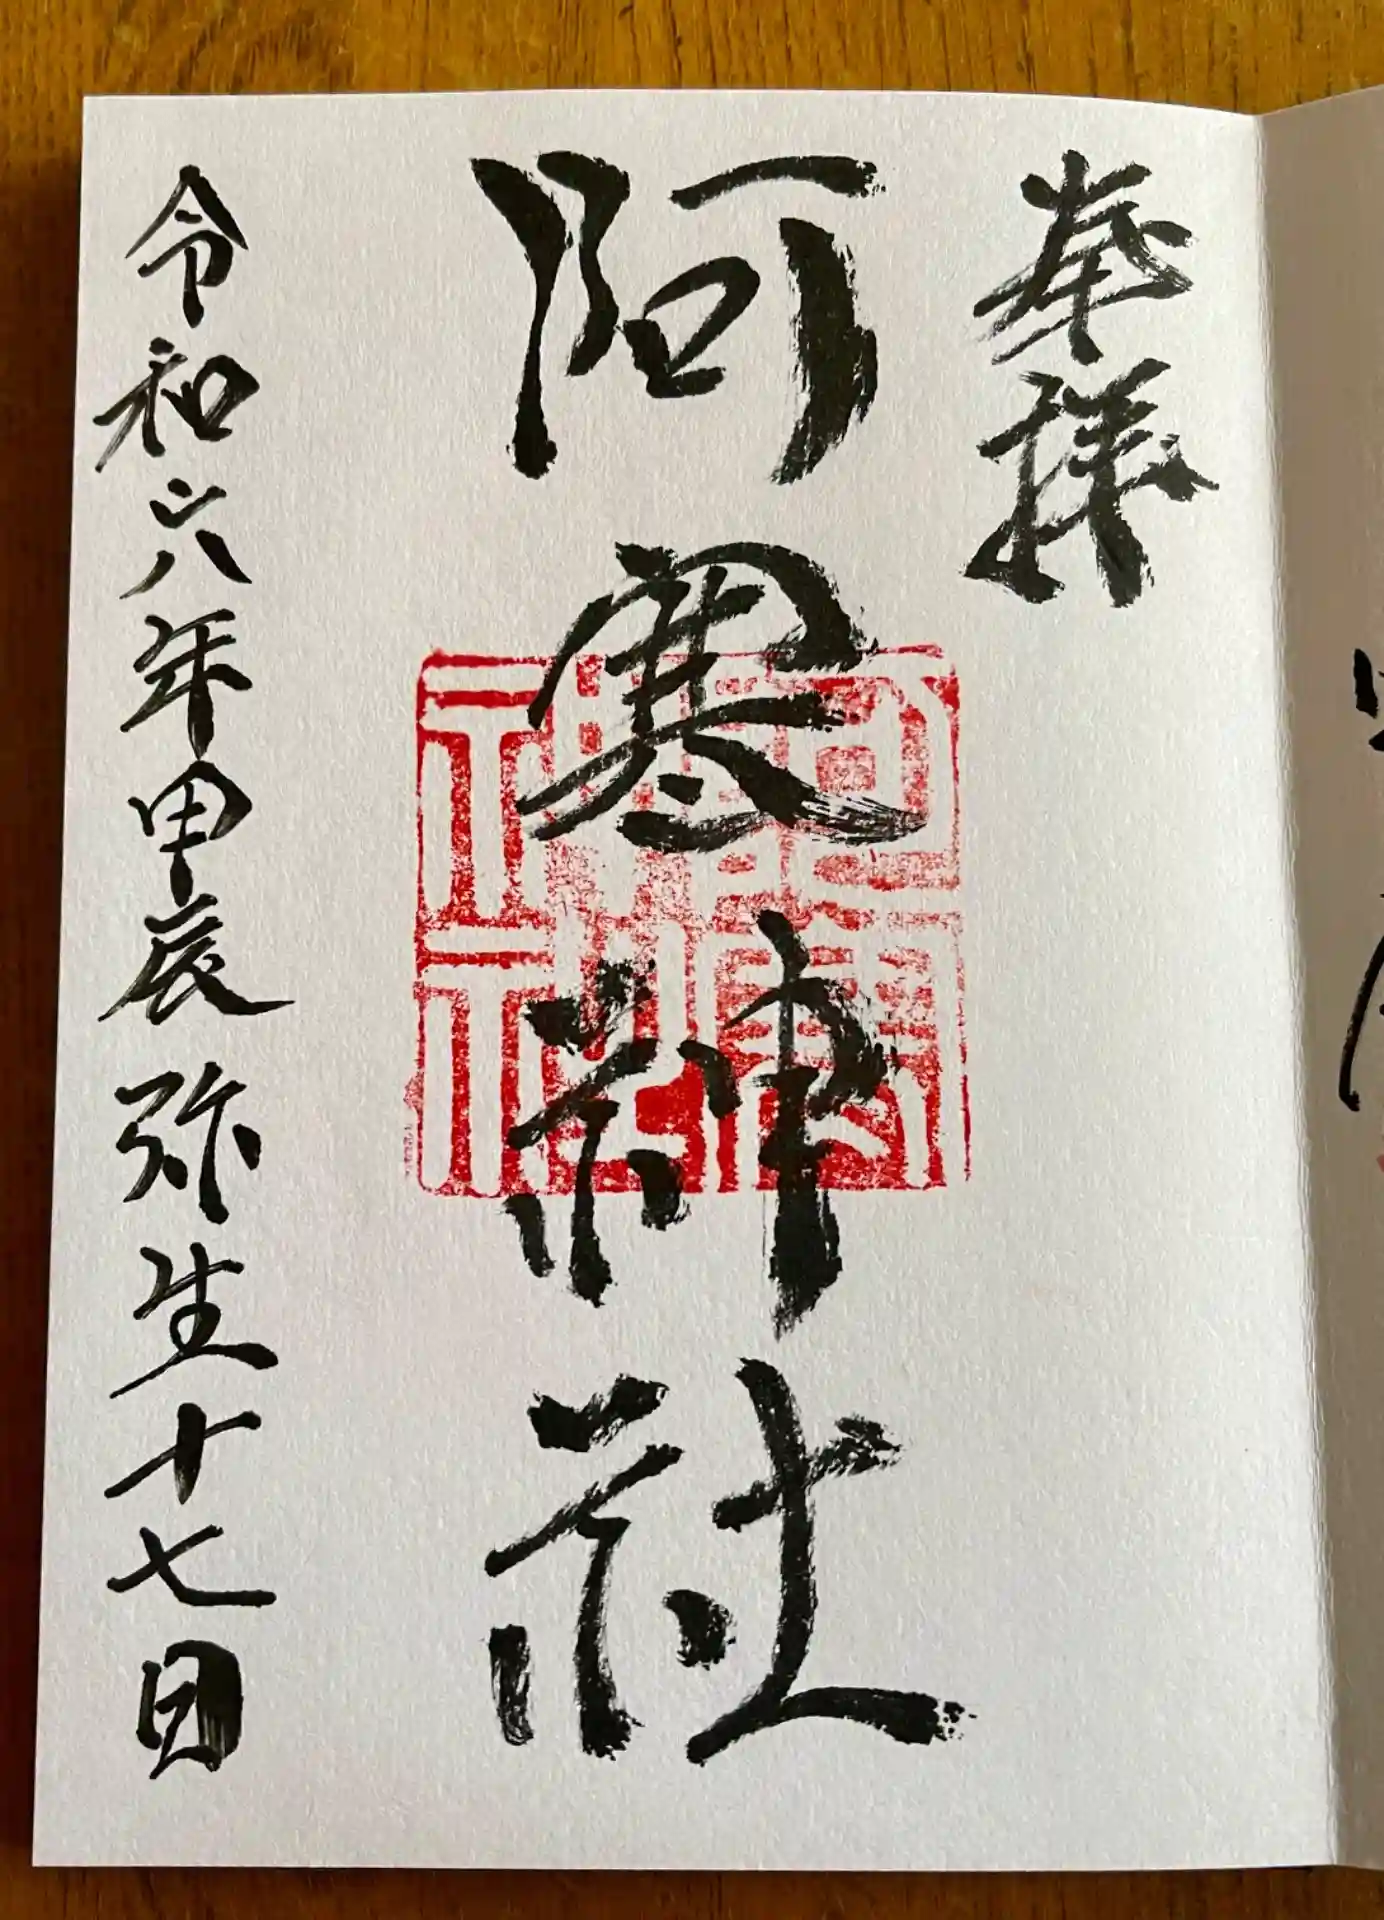 奉拝
阿寒神社
令和六年甲辰弥生十七日